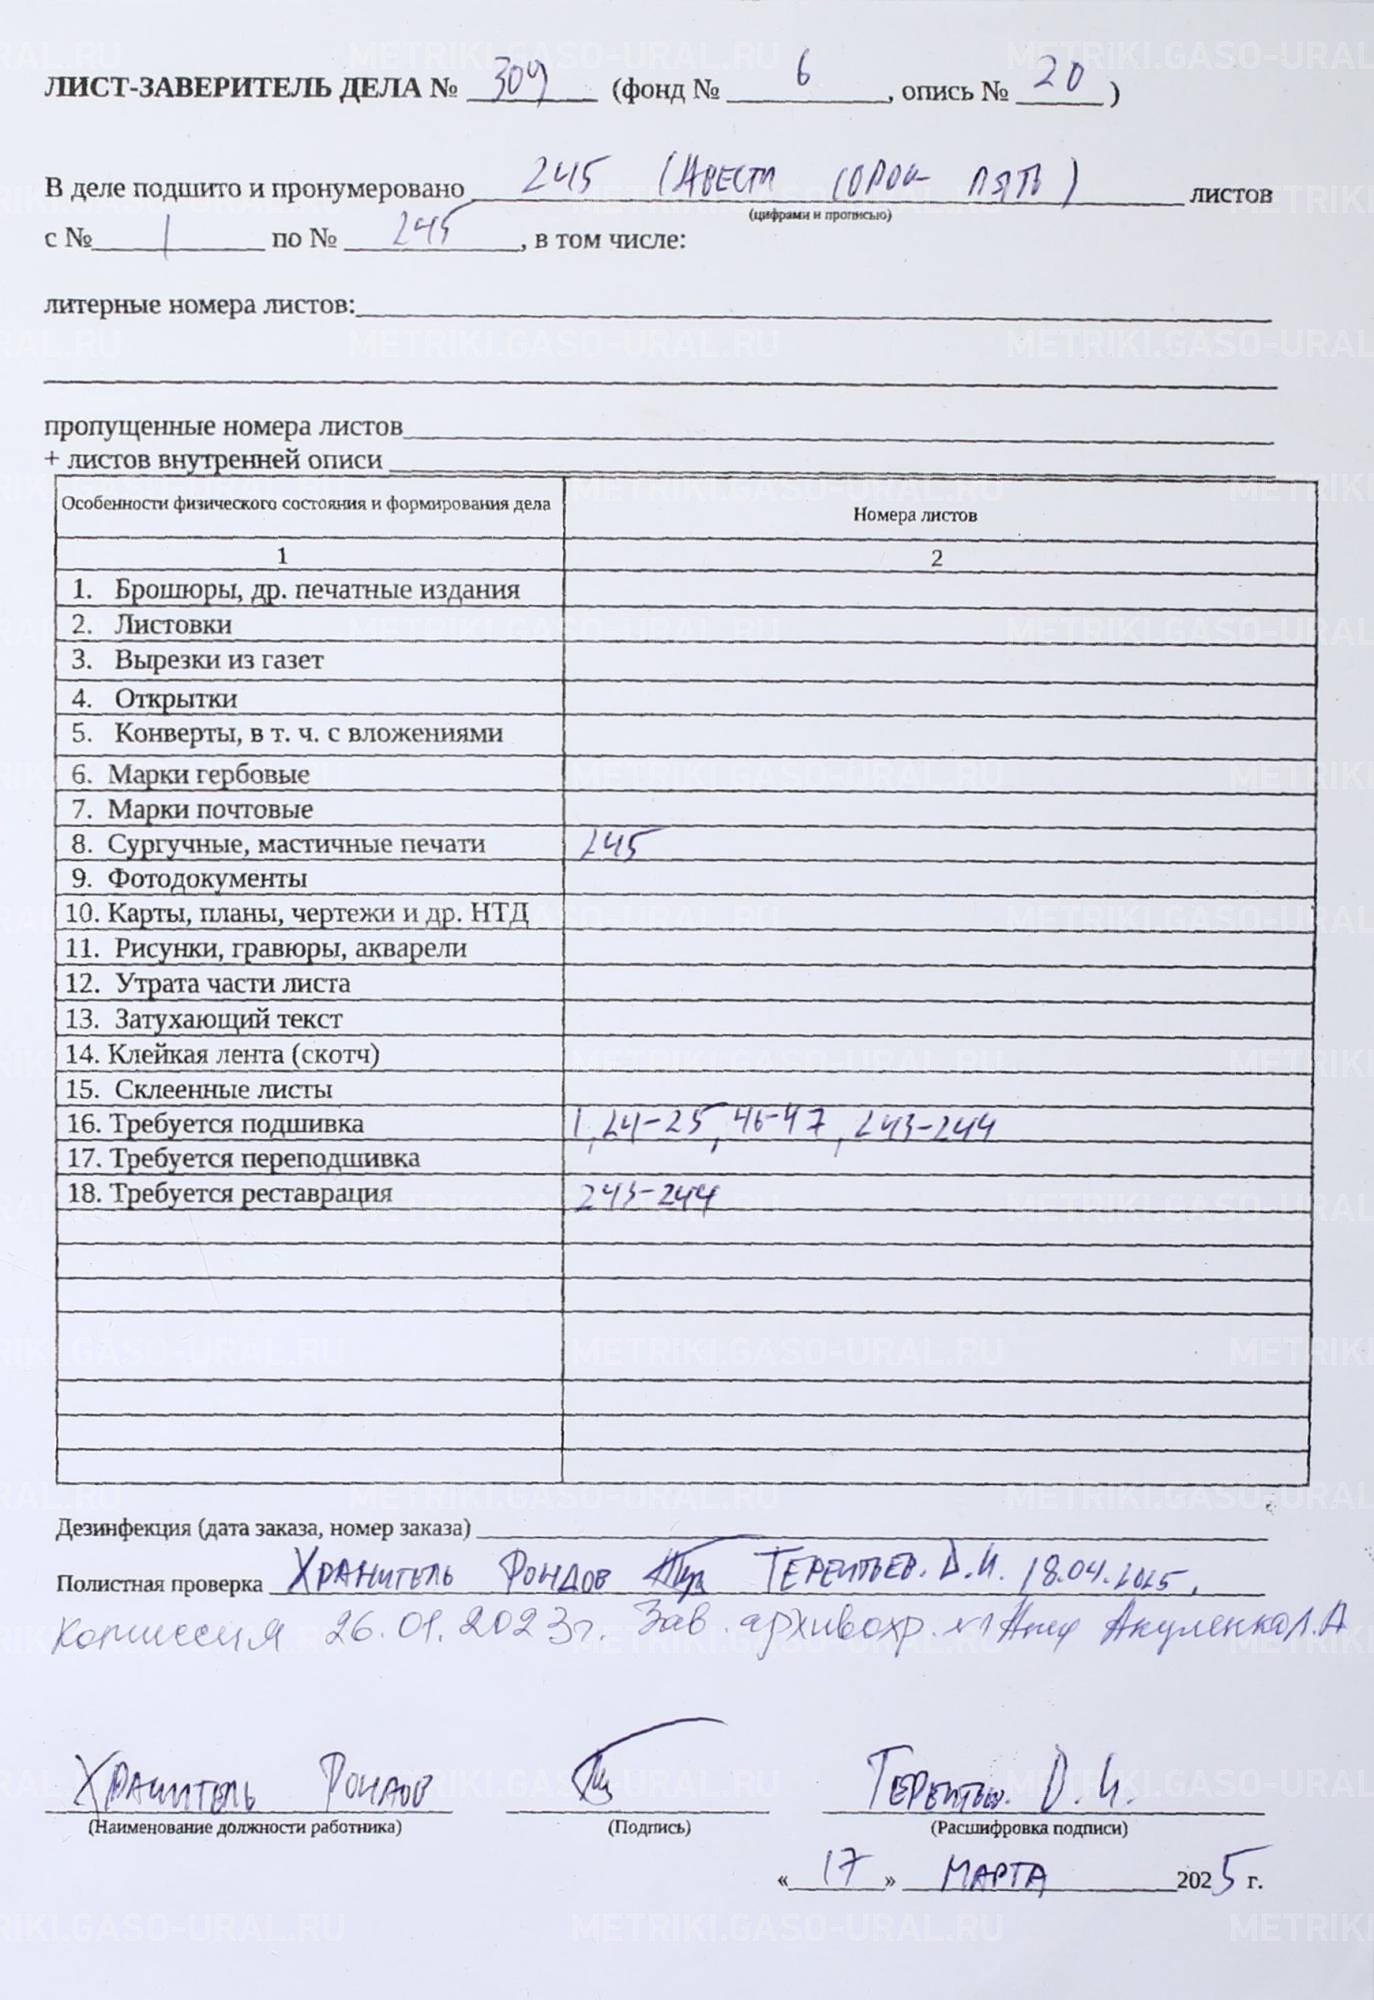 ЛИСТ-ЗАВЕРИТЕЛЬ ДЕЛА № 309 (фонд № 6, опись № 20)
В деле подшито и пронумеровано 245 (двести сорок пять) листов
(цифрами и прописью)
с № 1 по № 245, в том числе:
литерные номера листов:
пропущенные номера листов
+ листов внутренней описи
Особенности физического состояния и формирования дела Номера листов
1 2
1. Брошюры, др. печатные издания
2. Листовки
3. Вырезки из газет
4. Открытки
5. Конверты, в т. ч. с вложениями
6. Марки гербовые
7. Марки почтовые
8. Сургучные, мастичные печати 245
9. Фотодокументы
10. Карты, планы, чертежи и др. НТД
11. Рисунки, гравюры, акварели
12. Утрата части листа
13. Затухающий текст
14. Клейкая лента (скотч)
15. Склеенные листы
16. Требуется подшивка 1, 24-25, 46-47, 243-244
17. Требуется переподшивка
18. Требуется реставрация 243-244
Дезинфекция (дата заказа, номер заказа)
Полистная проверка Хранитель фондов Терентьев. Д.И. 18.04.2025.
Комиссия 26.01.2023г. Зав. архивохр. №1 Акуленко Л.А
Хранитель фондов Терентьев. Д.И.
(Наименование должности работника) (Подпись) (Расшифровка подписи)
«17» марта 2025 г.
METRIKI.GASO-URAL.RU